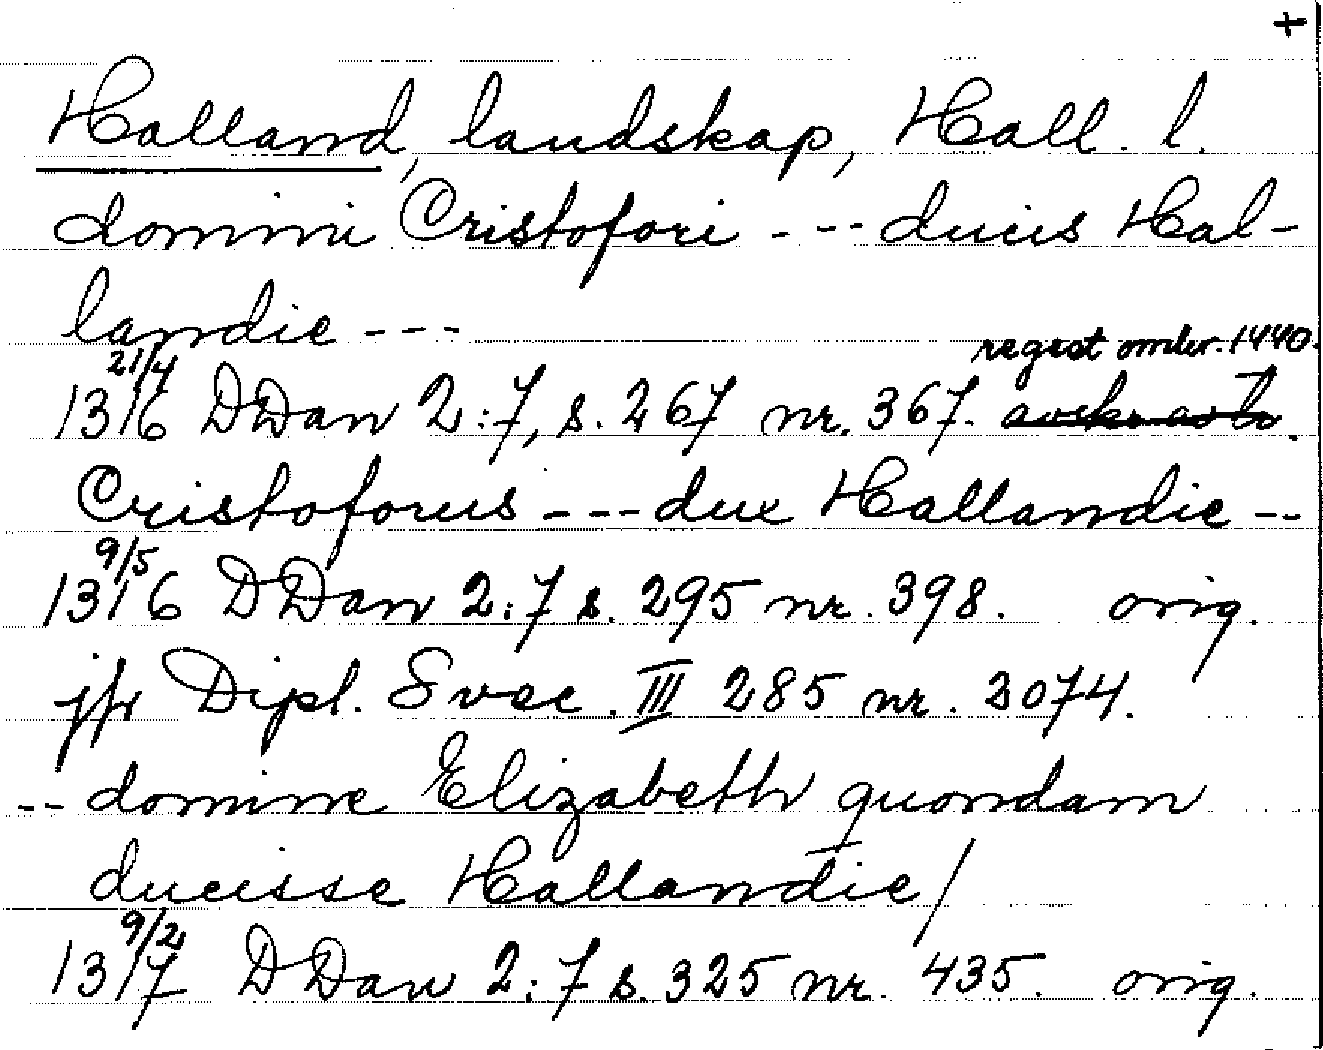 +
Halland, landskap, Hall. l.
domini Cristofori --- ducis Hal-
landie ---
regest omkr. 1440.
21/4
1316 DDan 2:7, s. 267 nr. 367.
Cristoforus --- dux Hallandie --
9/5
1316 DDan 2:7 s. 295 nr. 398. orig.
jfr Dipl. Svec. III 285 nr. 2074.
-- domine Elizabeth quondam
ducisse Hallandie/
9/2
1317 DDan 2:7 s. 325 nr. 435. orig.